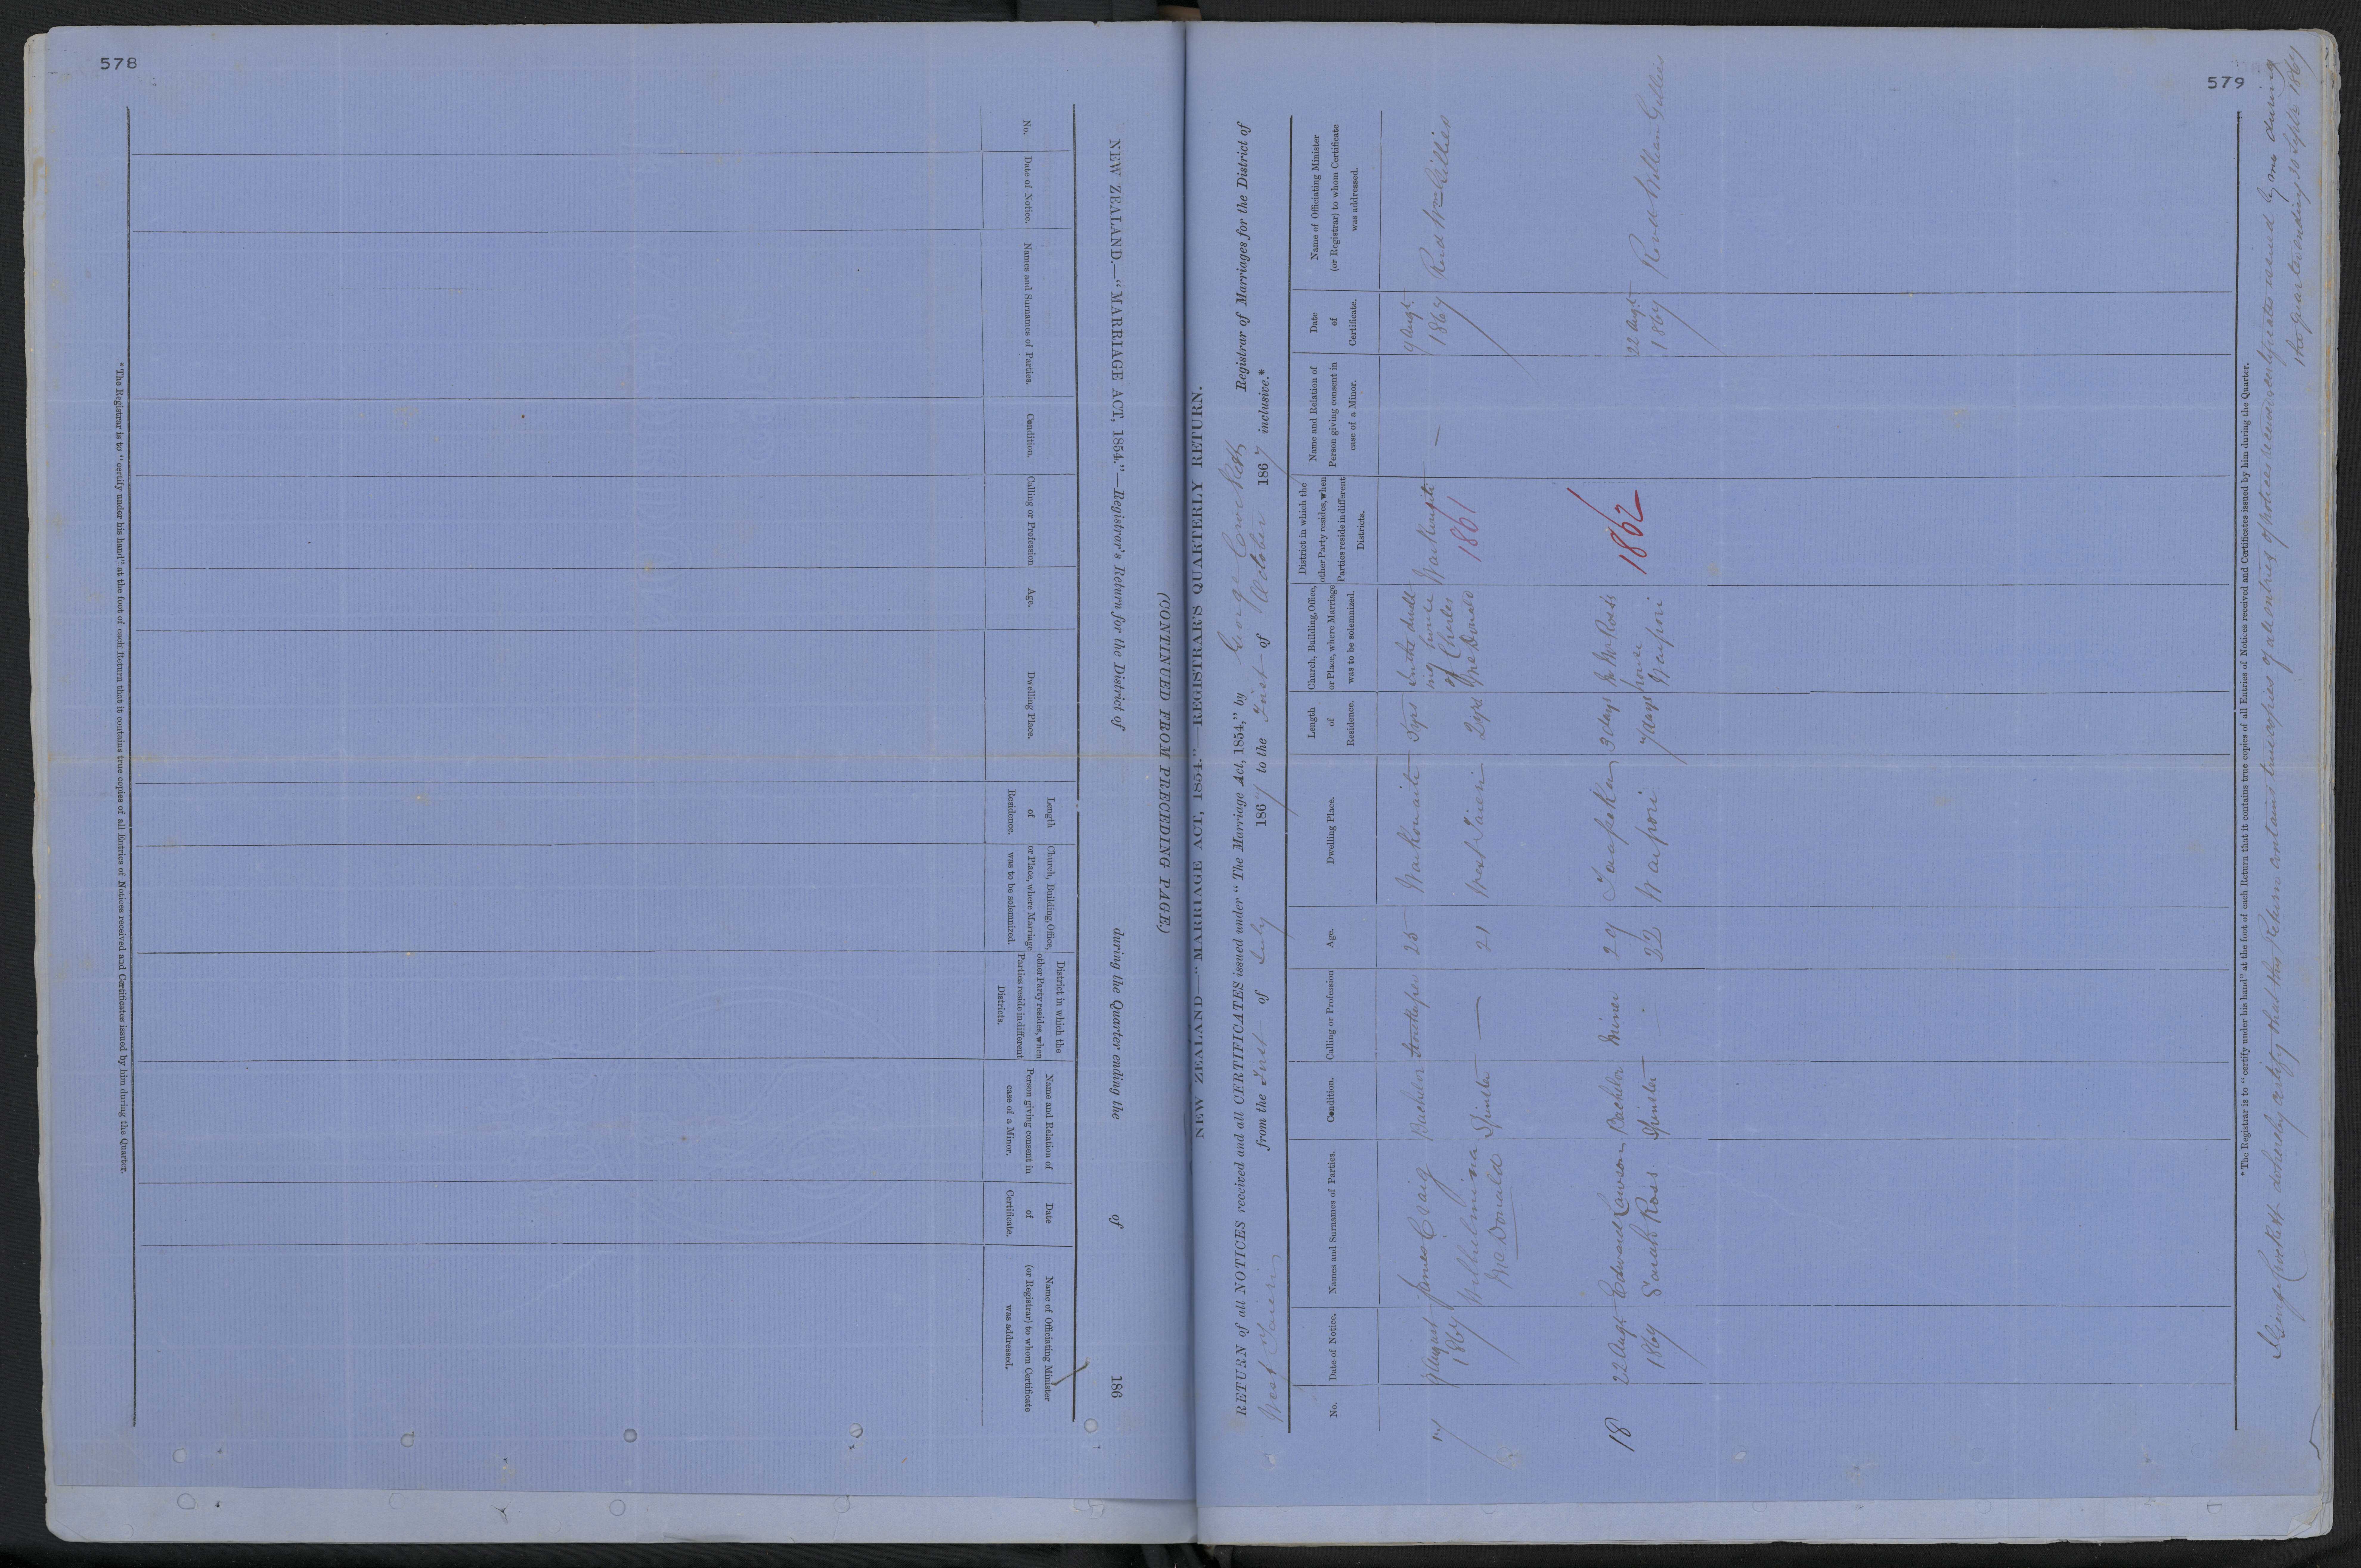 578
NEW ZEALAND.—"MARRIAGE ACT, 1854."—Registrar's Return for the District of during the Quarter ending the of 186
No.
Date of Notice.
Names and Surnames of Parties.
Condition.
Calling or Profession
Age.
Dwelling Place.
Length
of
Residence.
Church, Building, Office,
or Place, where Marriage
was to be solemnized.
District in which the
other Party resides, when
Parties reside in different
Districts.
Name and Relation of
Person giving consent in
case of a Minor.
Date
of
Certificate.
Name of Officiating Minister
(or Registrar) to whom Certificate
was addressed.
* The Registrar is to "certify under his hand" at the foot of each Return that it contains true copies of all Entries of Notices received and Certificates issued by him during the Quarter.
(CONTINUED FROM PRECEDING PAGE.)
579
NEW ZEALAND—"MARRIAGE ACT, 1854."—REGISTRAR'S QUARTERLY RETURN.
RETURN of all NOTICES received and all CERTIFICATES issued under "The Marriage Act, 1854," by George Registrar of Marriages for the District of
West Taieri from the First of July 1867 to the First of October 1867 inclusive.*
No.
Date of Notice.
Names and Surnames of Parties.
Condition.
Calling or Profession
Age.
Dwelling Place.
Length
of
Residence.
Church, Building, Office,
or Place, where Marriage
was to be solemnized.
District in which the
other Party resides, when
Parties reside in different
Districts.
Name and Relation of
Person giving consent in
case of a Minor.
Date
of
Certificate.
Name of Officiating Minister
(or Registrar) to whom Certificate
was addressed.
17
9 August
1867
James Craig
Bachelor
Storekeeper
25
5 yrs
In the dwell
ing house
of Charles
McDonald
1861
—
9 Augt
1867
Revd Wm Gillies
Wilhelmina
McDonald
Spinster
—
21
West Taieri
2 yrs
18
22 Augt
1867
Edward Lawson
Bachelor
Miner
29
3 days
Mr Ross
house
Waipori
1862
22 Augt
1867
Revd William Gillies
Sarah Ross
Spinster
22
Waipori
7 days
* The Registrar is to "certify under his hand" at the foot of each Return that it contains true copies of all Entries of Notices received and Certificates issued by him during the Quarter.
I George do hereby certify that this Return contains true copies of all entries of notices received & certificates issued by me during
the quarter ending 30 Septr 1867